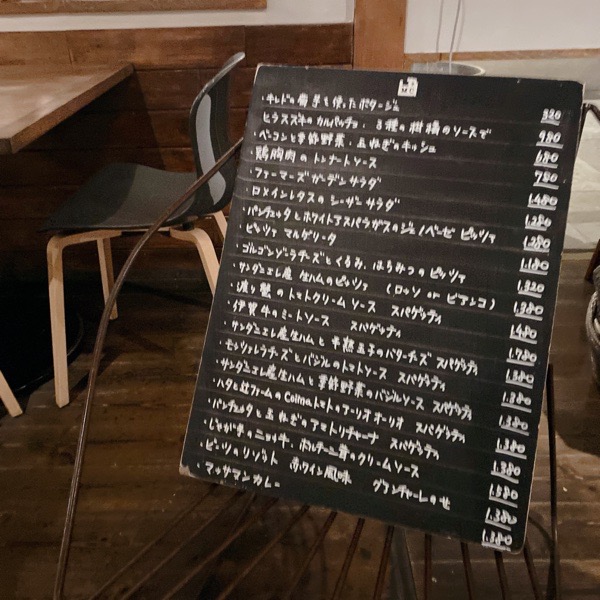 ・キレドの青芋を使ったポタージュ 320
ヒラスズキのカルパッチョ、3種の柑橘のソースで 980
・ベーコンと季節野菜、玉ねぎのキッシュ 680
・鶏胸肉のトンナートソース 780
・ファーマーズガーデンサラダ 1.480
・ロメインレタスのシーザーサラダ 1.280
・パンチェッタとホワイトアスパラガスのジェノベーゼ ピッツァ 1.280
・ピッツァ マルゲリータ 1.180
・ゴルゴンゾーラチーズとくるみ、はちみつのピッツァ 1.320
・サンダニエレ産 生ハムのピッツァ (ロッソ or ビアンコ) 1.380
・渡り蟹のトマトクリームソース スパゲッティ 1.480
・伊賀牛のミートソース スパゲッティ 1.780
・サンダニエレ産生ハムと半熟玉子のバターチーズ スパゲッティ 1.380
・モッツァレラチーズとバジルのトマトソース スパゲッティ 1.380
・サンダニエレ産生ハムと季節野菜のバジルソース スパゲッティ 1.380
・ハタと辻ファームのColmaトマトのアーリオオーリオ スパゲッティ 1.380
・パンチェッタと玉ねぎのアマトリチャーナ スパゲッティ 1.380
・じゃが芋のニョッキ、ポルチーニ茸のクリームソース 1.580
・ビーツのリゾット 赤ワイン風味 グアンチャーレのせ 1.380
・マッサマンカレー 1.380